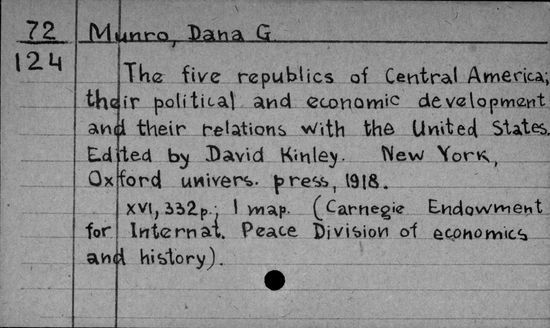 72 Munro, Dana G
124
The five republics of Central America;
their political and economic development
and their relations with the United States.
Edited by David Kinley. New York,
Oxford univers. press, 1918.
XVI, 332p.; 1 map. (Carnegie Endowment
for Internat. Peace Division of economics
and history).